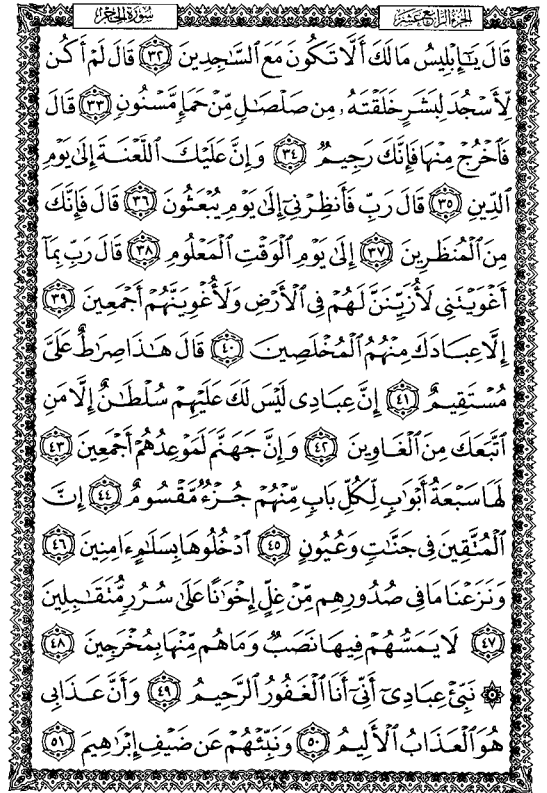 سُورَةُ الحِجْرِ الجُزْءُ الرَّابِعَ عَشَرَ
قَالَ يَٰٓإِبْلِيسُ مَا لَكَ أَلَّا تَكُونَ مَعَ ٱلسَّٰجِدِينَ ٣٢ قَالَ لَمْ أَكُن
لِّأَسْجُدَ لِبَشَرٍ خَلَقْتَهُۥ مِن صَلْصَٰلٍ مِّنْ حَمَإٍ مَّسْنُونٍ ٣٣ قَالَ
فَٱخْرُجْ مِنْهَا فَإِنَّكَ رَجِيمٌ ٣٤ وَإِنَّ عَلَيْكَ ٱللَّعْنَةَ إِلَىٰ يَوْمِ
ٱلدِّينِ ٣٥ قَالَ رَبِّ فَأَنظِرْنِىٓ إِلَىٰ يَوْمِ يُبْعَثُونَ ٣٦ قَالَ فَإِنَّكَ
مِنَ ٱلْمُنظَرِينَ ٣٧ إِلَىٰ يَوْمِ ٱلْوَقْتِ ٱلْمَعْلُومِ ٣٨ قَالَ رَبِّ بِمَآ
أَغْوَيْتَنِى لَأُزَيِّنَنَّ لَهُمْ فِى ٱلْأَرْضِ وَلَأُغْوِيَنَّهُمْ أَجْمَعِينَ ٣٩
إِلَّا عِبَادَكَ مِنْهُمُ ٱلْمُخْلَصِينَ ٤٠ قَالَ هَٰذَا صِرَٰطٌ عَلَىَّ
مُسْتَقِيمٌ ٤١ إِنَّ عِبَادِى لَيْسَ لَكَ عَلَيْهِمْ سُلْطَٰنٌ إِلَّا مَنِ
ٱتَّبَعَكَ مِنَ ٱلْغَاوِينَ ٤٢ وَإِنَّ جَهَنَّمَ لَمَوْعِدُهُمْ أَجْمَعِينَ ٤٣
لَهَا سَبْعَةُ أَبْوَٰبٍ لِّكُلِّ بَابٍ مِّنْهُمْ جُزْءٌ مَّقْسُومٌ ٤٤ إِنَّ
ٱلْمُتَّقِينَ فِى جَنَّٰتٍ وَعُيُونٍ ٤٥ ٱدْخُلُوهَا بِسَلَٰمٍ ءَامِنِينَ ٤٦
وَنَزَعْنَا مَا فِى صُدُورِهِم مِّنْ غِلٍّ إِخْوَٰنًا عَلَىٰ سُرُرٍ مُّتَقَٰبِلِينَ
٤٧ لَا يَمَسُّهُمْ فِيهَا نَصَبٌ وَمَا هُم مِّنْهَا بِمُخْرَجِينَ ٤٨
۞ نَبِّئْ عِبَادِىٓ أَنِّىٓ أَنَا ٱلْغَفُورُ ٱلرَّحِيمُ ٤٩ وَأَنَّ عَذَابِى
هُوَ ٱلْعَذَابُ ٱلْأَلِيمُ ٥٠ وَنَبِّئْهُمْ عَن ضَيْفِ إِبْرَٰهِيمَ ٥١